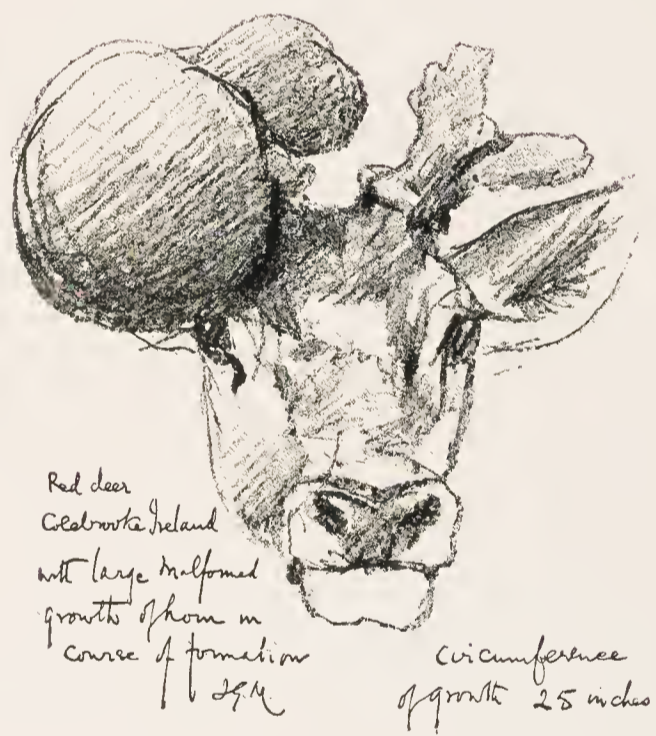 Red deer
Colebrooke Ireland
with large malformed
growth of horn in
course of formation
J.G.M.
circumference
of growth 25 inches